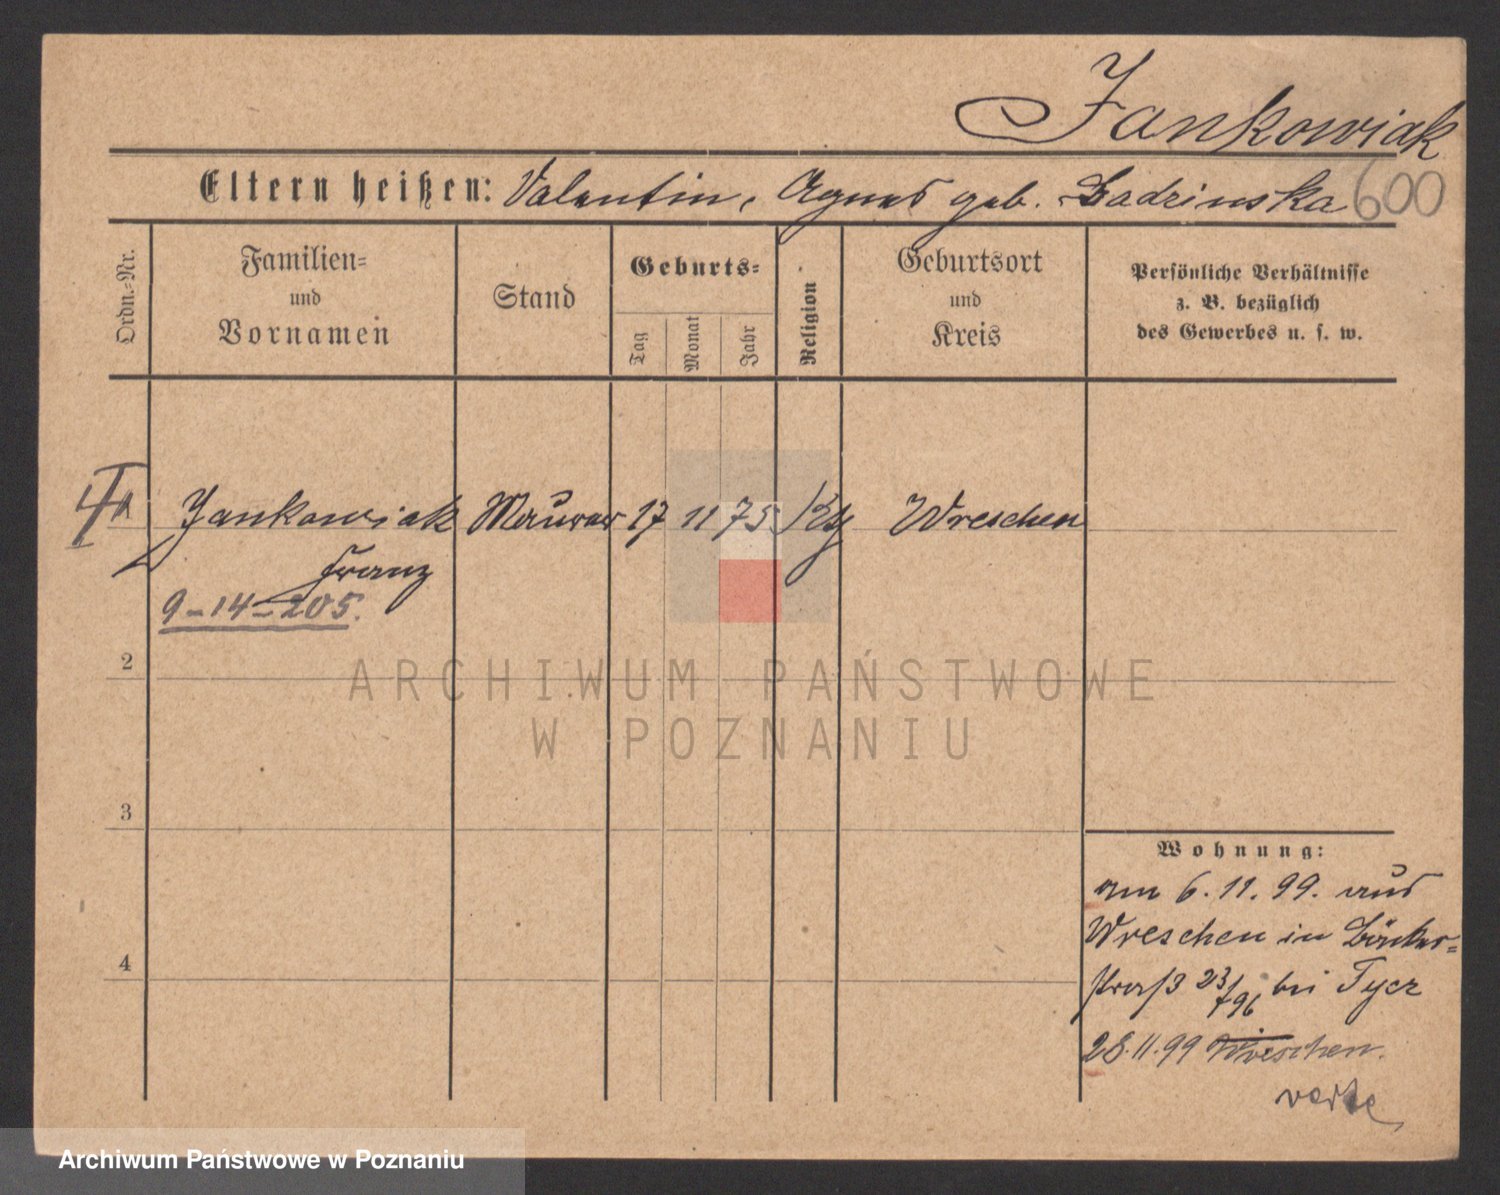 Jankowiak
Eltern heißen: Valentin, Agnes geb. Badzinska 600
Ordn.-Nr.
Familien- und Vornamen
Stand
Geburts-
Tag
Monat
Jahr
Religion
Geburtsort und Kreis
Persönliche Verhältnisse
z. B. bezüglich
des Gewerbes u. s. w.
Jankowiak Maurer 17 11 75 Kth Wreschen
Franz
9-14-205.
2
ARCHIWUM PAŃSTWOWE
W POZNANIU
3
4
Wohnung:
am 6.11.99. aus
Wreschen in Bäcker=
straß 23/ bei Tycz
28.11.99 Wreschen.
verte
Archiwum Państwowe w Poznaniu